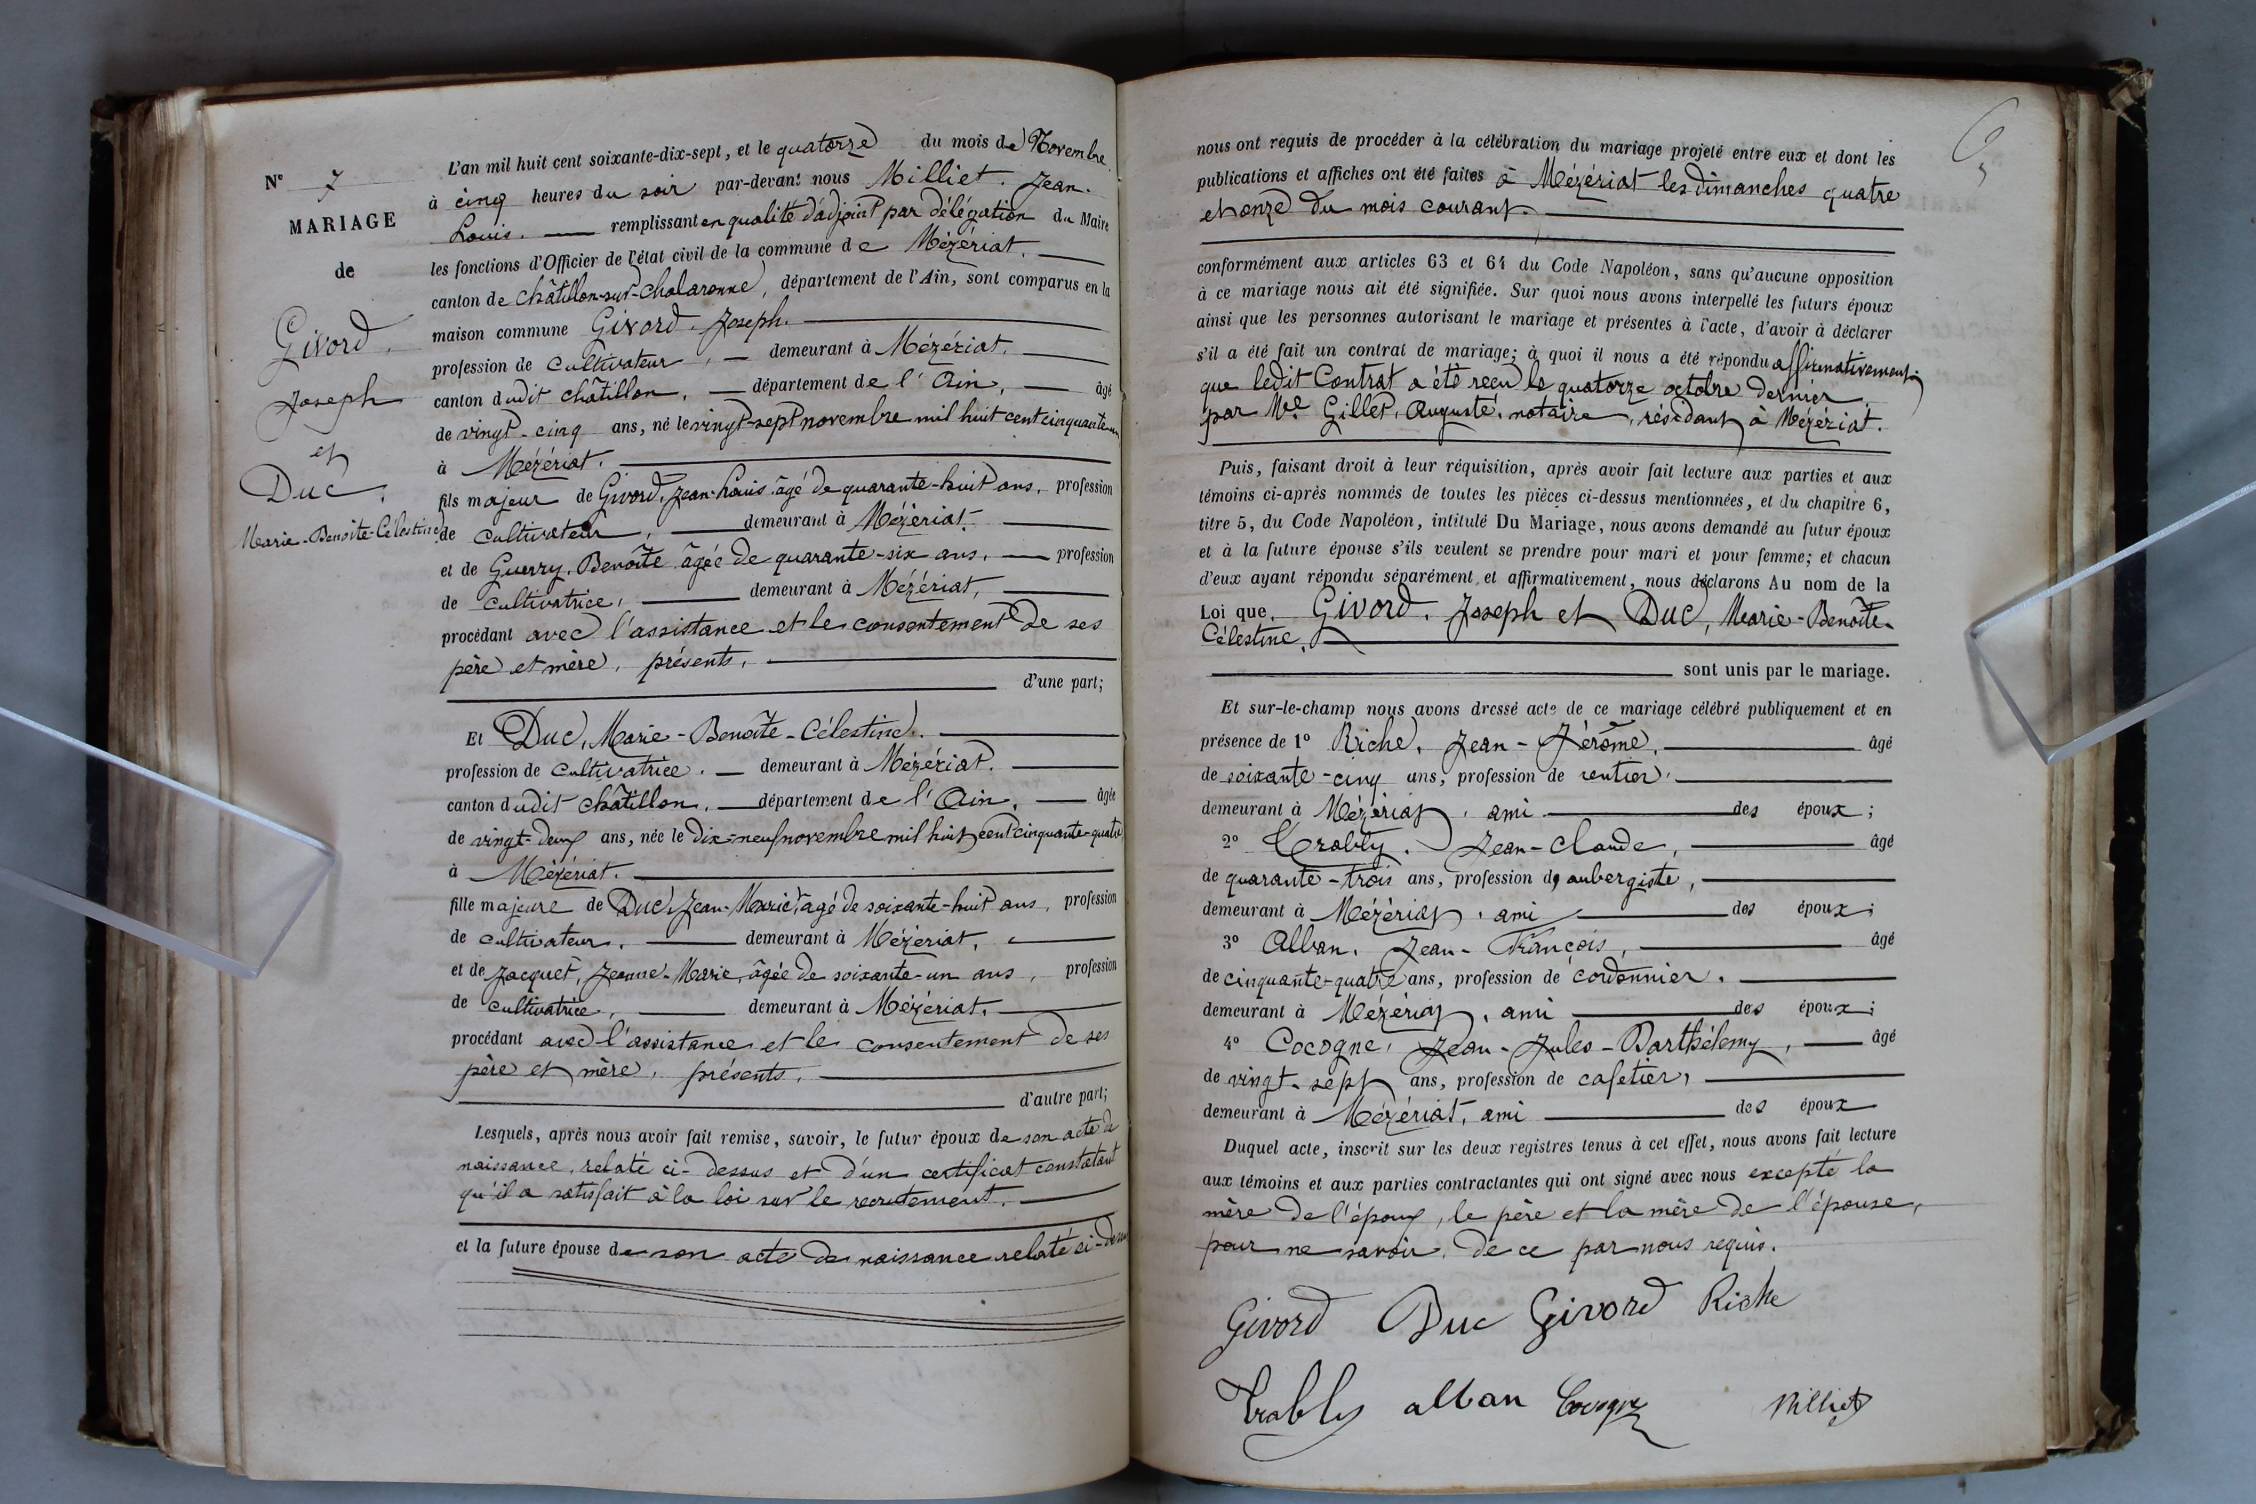 N° 7
MARIAGE
de
Givord,
Joseph
et
Duc,
Marie-Benoîte-Célestine
L'an mil huit cent soixante-dix-sept, et le quatorze du mois de Novembre
à cinq heures du soir par-devant nous Milliet. Jean-
Louis. remplissant en qualité d'adjoint par délégation du Maire
les fonctions d'Officier de l'état civil de la commune de Mézériat.
canton de Châtillon-sur-Chalaronne, département de l'Ain, sont comparus en la
maison commune Givord. Joseph.
profession de cultivateur, demeurant à Mézériat.
canton dudit châtillon, département de l'Ain, âgé
de vingt-cinq ans, né le vingt-sept novembre mil huit cent cinquante-un
à Mézériat.
fils majeur de Givord, Jean-Louis âgé de quarante-huit ans, profession
de cultivateur, demeurant à Mézériat.
et de Guerry. Benoîte âgée de quarante-six ans, profession
de cultivatrice, demeurant à Mézériat,
procédant avec l'assistance et le consentement de ses
père et mère, présents,
d'une part;
Et Duc, Marie-Benoîte-Célestine.
profession de cultivatrice. demeurant à Mézériat.
canton dudit châtillon, département de l'Ain, âgée
de vingt-deux ans, née le dix-neuf novembre mil huit cent cinquante-quatre
à Mézériat.
fille majeure de Duc, Jean-Marie, âgé de soixante-huit ans, profession
de cultivateur, demeurant à Mézériat,
et de Jacquet, Jeanne-Marie, âgée de soixante-un ans, profession
de cultivatrice, demeurant à Mézériat.
procédant avec l'assistance et le consentement de ses
père et mère, présents,
d'autre part;
Lesquels, après nous avoir fait remise, savoir, le futur époux de son acte de
naissance, relaté ci-dessus et d'un certificat constatant
qu'il a satisfait à la loi sur le recrutement.
et la future épouse de son acte de naissance relaté ci-dessus
nous ont requis de procéder à la célébration du mariage projeté entre eux et dont les
publications et affiches ont été faites à Mézériat les dimanches quatre
et onze du mois courant.
conformément aux articles 63 et 64 du Code Napoléon, sans qu'aucune opposition
à ce mariage nous ait été signifiée. Sur quoi nous avons interpellé les futurs époux
ainsi que les personnes autorisant le mariage et présentes à l'acte, d'avoir à déclarer
s'il a été fait un contrat de mariage; à quoi il nous a été répondu affirmativement;
que ledit Contrat a été reçu le quatorze octobre dernier
par Me Gillet, Auguste, notaire, résidant à Mézériat.
Puis, faisant droit à leur réquisition, après avoir fait lecture aux parties et aux
témoins ci-après nommés de toutes les pièces ci-dessus mentionnées, et du chapitre 6,
titre 5, du Code Napoléon, intitulé Du Mariage, nous avons demandé au futur époux
et à la future épouse s'ils veulent se prendre pour mari et pour femme; et chacun
d'eux ayant répondu séparément et affirmativement, nous déclarons Au nom de la
Loi que, Givord. Joseph et Duc, Marie-Benoîte-
Célestine,
sont unis par le mariage.
Et sur-le-champ nous avons dressé acte de ce mariage célébré publiquement et en
présence de 1° Riche, Jean-Jérôme, âgé
de soixante-cinq ans, profession de rentier,
demeurant à Mézériat, ami des époux;
2° Trably. Jean-Claude, âgé
de quarante-trois ans, profession d'aubergiste,
demeurant à Mézériat, ami des époux;
3° Alban, Jean-François, âgé
de cinquante-quatre ans, profession de cordonnier.
demeurant à Mézériat, ami des époux;
4° Cocogne, Jean-Jules-Barthélemy, âgé
de vingt-sept ans, profession de cafetier,
demeurant à Mézériat, ami des époux
Duquel acte, inscrit sur les deux registres tenus à cet effet, nous avons fait lecture
aux témoins et aux parties contractantes qui ont signé avec nous excepté la
mère de l'époux, le père et la mère de l'épouse,
pour ne savoir, de ce par nous requis.
Givord Duc Givord Riche
Trably alban Cocogne Milliet